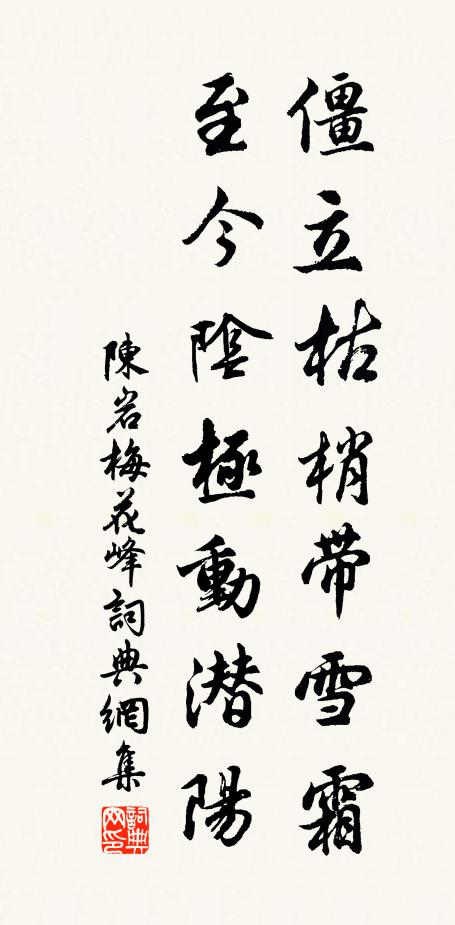 僵立枯梢带雪霜
至今陰極動潜陽
陳岩梅花峰詞典網集
詞典网印